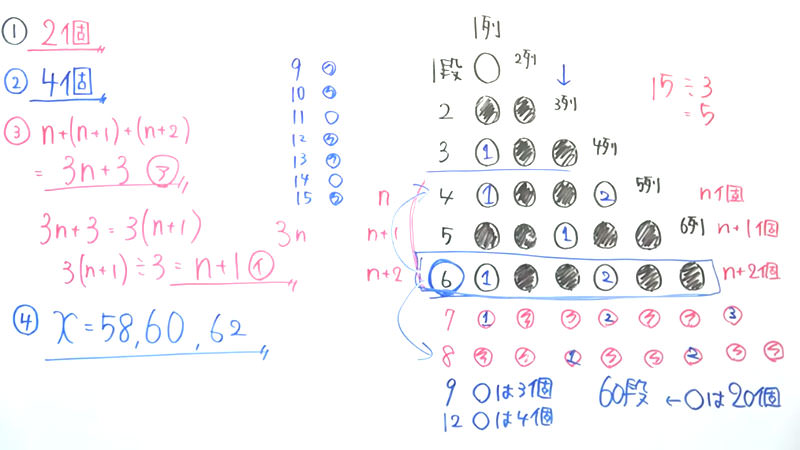 ① 2個
② 4個
③ n+(n+1)+(n+2)
= 3n+3 ㋐
3n+3=3(n+1) 3n
3(n+1)÷3=n+1 ㋑
④ x=58,60,62
9
10
11
12
13
14
15
1列
1段 2列
2 3列
3 1 4列
n 4 1 2 5列 n個
n+1 5 1 6列 n+1個
n+2 6 1 2 n+2個
7 1 2 3
8 1 2
9 ○は3個
12 ○は4個
60段 ←○は20個
15÷3
=5